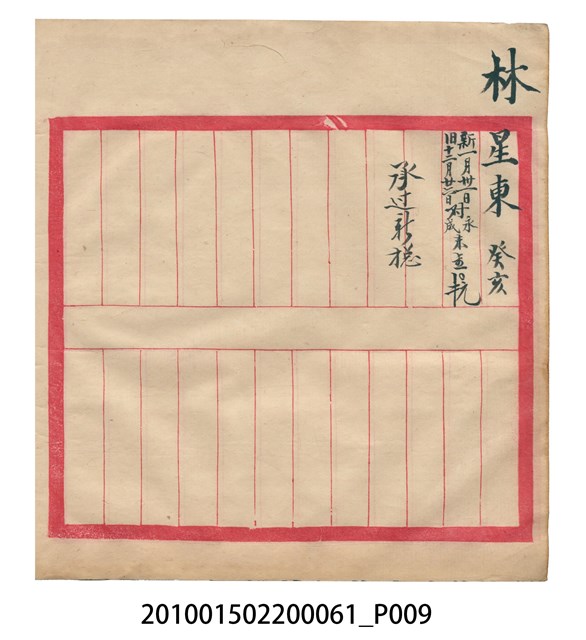 林星東 癸亥
新一月卅一日
旧十二月廿六日 对永成來
承过新總
201001502200061_P009